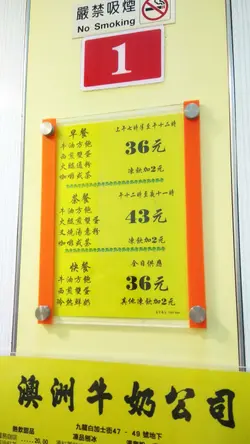 嚴禁吸煙
No Smoking
1
早餐 上午七時半至十二時
牛油方飽
西煎雙蛋 36元
火腿通粉
咖啡或茶 凍飲加2元
茶餐 十二時至夜十一時
牛油方飽
西煎雙蛋 43元
叉燒湯意粉
咖啡或茶 凍飲加2元
快餐 全日供應
牛油方飽 36元
西煎雙蛋
冷熱鮮奶 其他凍飲加2元
澳洲牛奶公司
九龍白加士街47-49號地下
熱飲飲品 凍品類冰
20.00